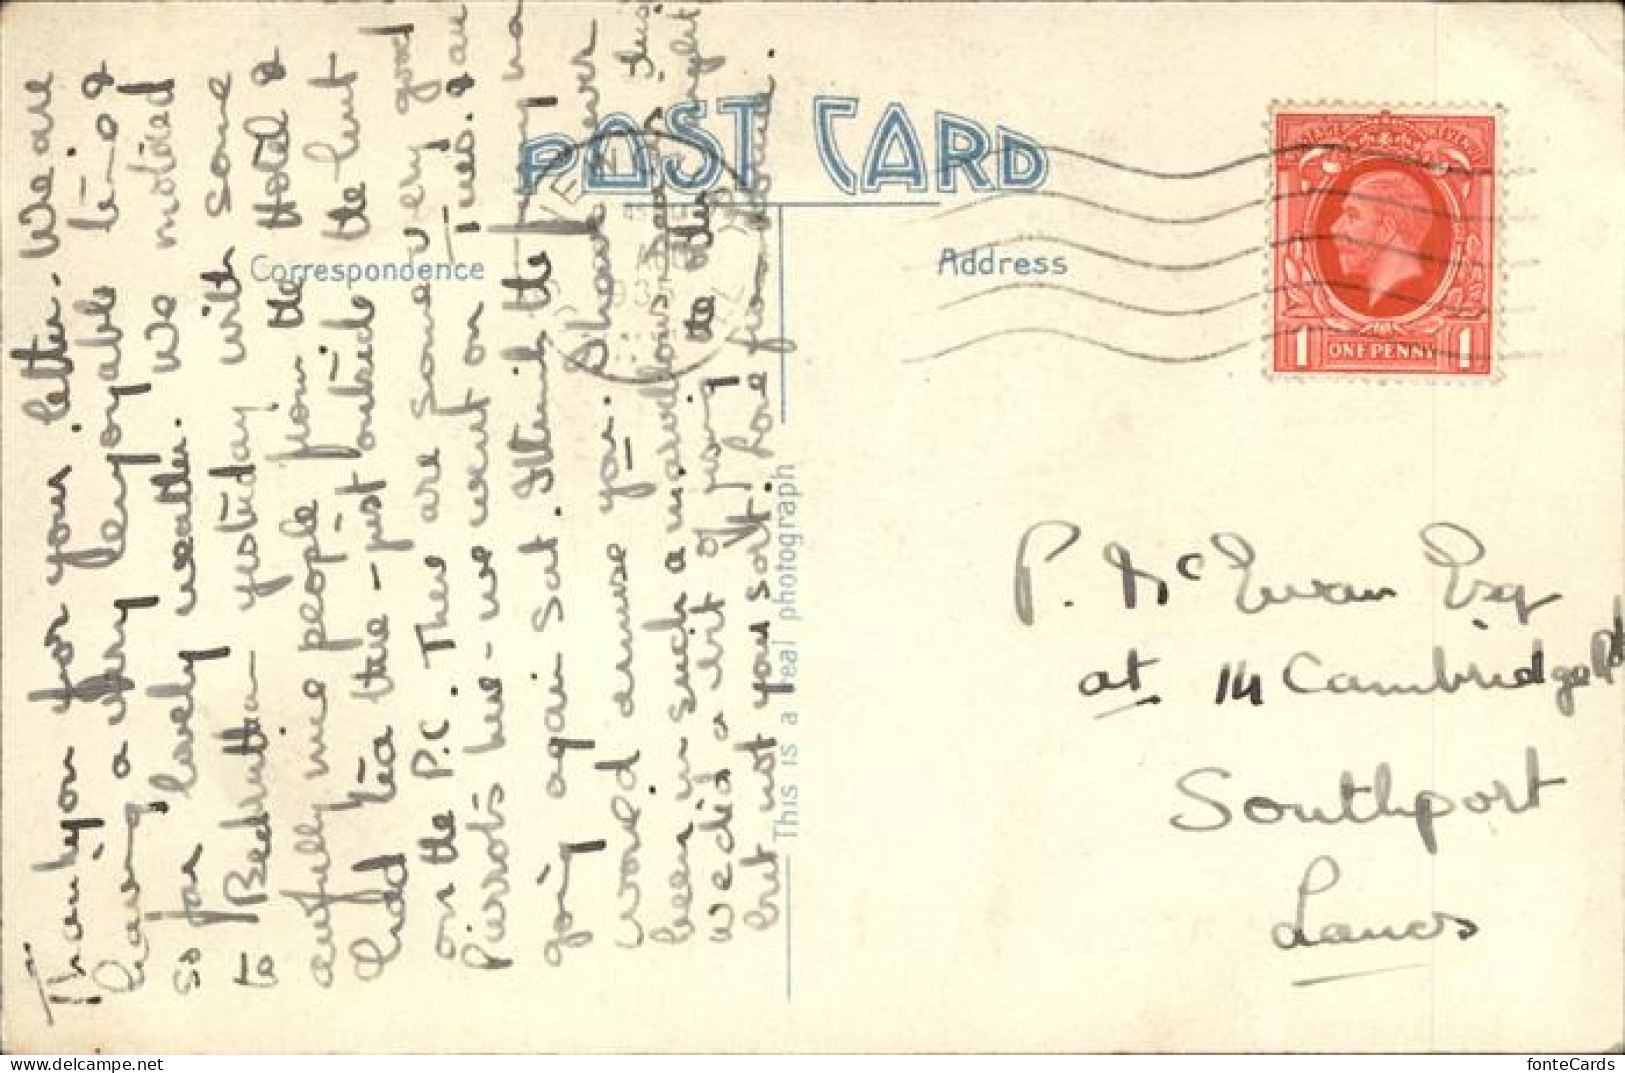 POST CARD
Correspondence
Address
Thank you for your letter. We are
having a very enjoyable time &
so far lovely weather. We motored
to Bedruthan yesterday with some
awfully nice people from the Hotel &
had tea there - just outside the hut
on the P.C. There are some very good
Pierrots here - we went on Tues. & are
going again Sat. I think the funny man
would amuse you. I have never
been in such a marvellous sea as this
We did a bit of the other night
but not your sort! Love from
This is a real photograph
ONE PENNY
1 1
P. McEwan Esq
at 14 Cambridge Rd
Southport
Lancs
fonteCards